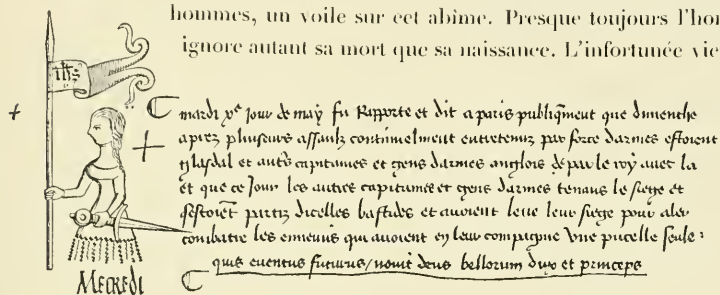 hommes, un voile sur cet abîme. Presque toujours l'hor
ignore autant sa mort que sa naissance. L'infortunée vie
ihs
mardi xe jour de may fu Rapporte et dit a paris publiqment que dimenche
aprez pluseurs assaulz continuelment entretenuz par force darmes estoient
glasdal et auts capitaines et gens darmes anglois de par le roy avec la
et que ce Jour les autres capitaines et gens darmes tenans le siege et
sestoiet partiz dicelles bastides et avoient leve leur siege pour aler
combatre les ennemis qui avoient en leur compaignie Une pucelle seule
quis eventus futurus/ novit deus bellorum dux et princeps
Mecredi